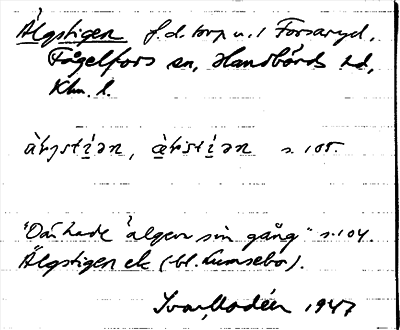 Älgstigen f.d. torp u. / Forsaryd,
Fågelfors sn, Handbörds hd,
Klm. l.
s. 105.
"Där hade älgen sin gång" s. 104.
Älgstigen ek (bl. Lumsebo).
Ivar Modéer 1947